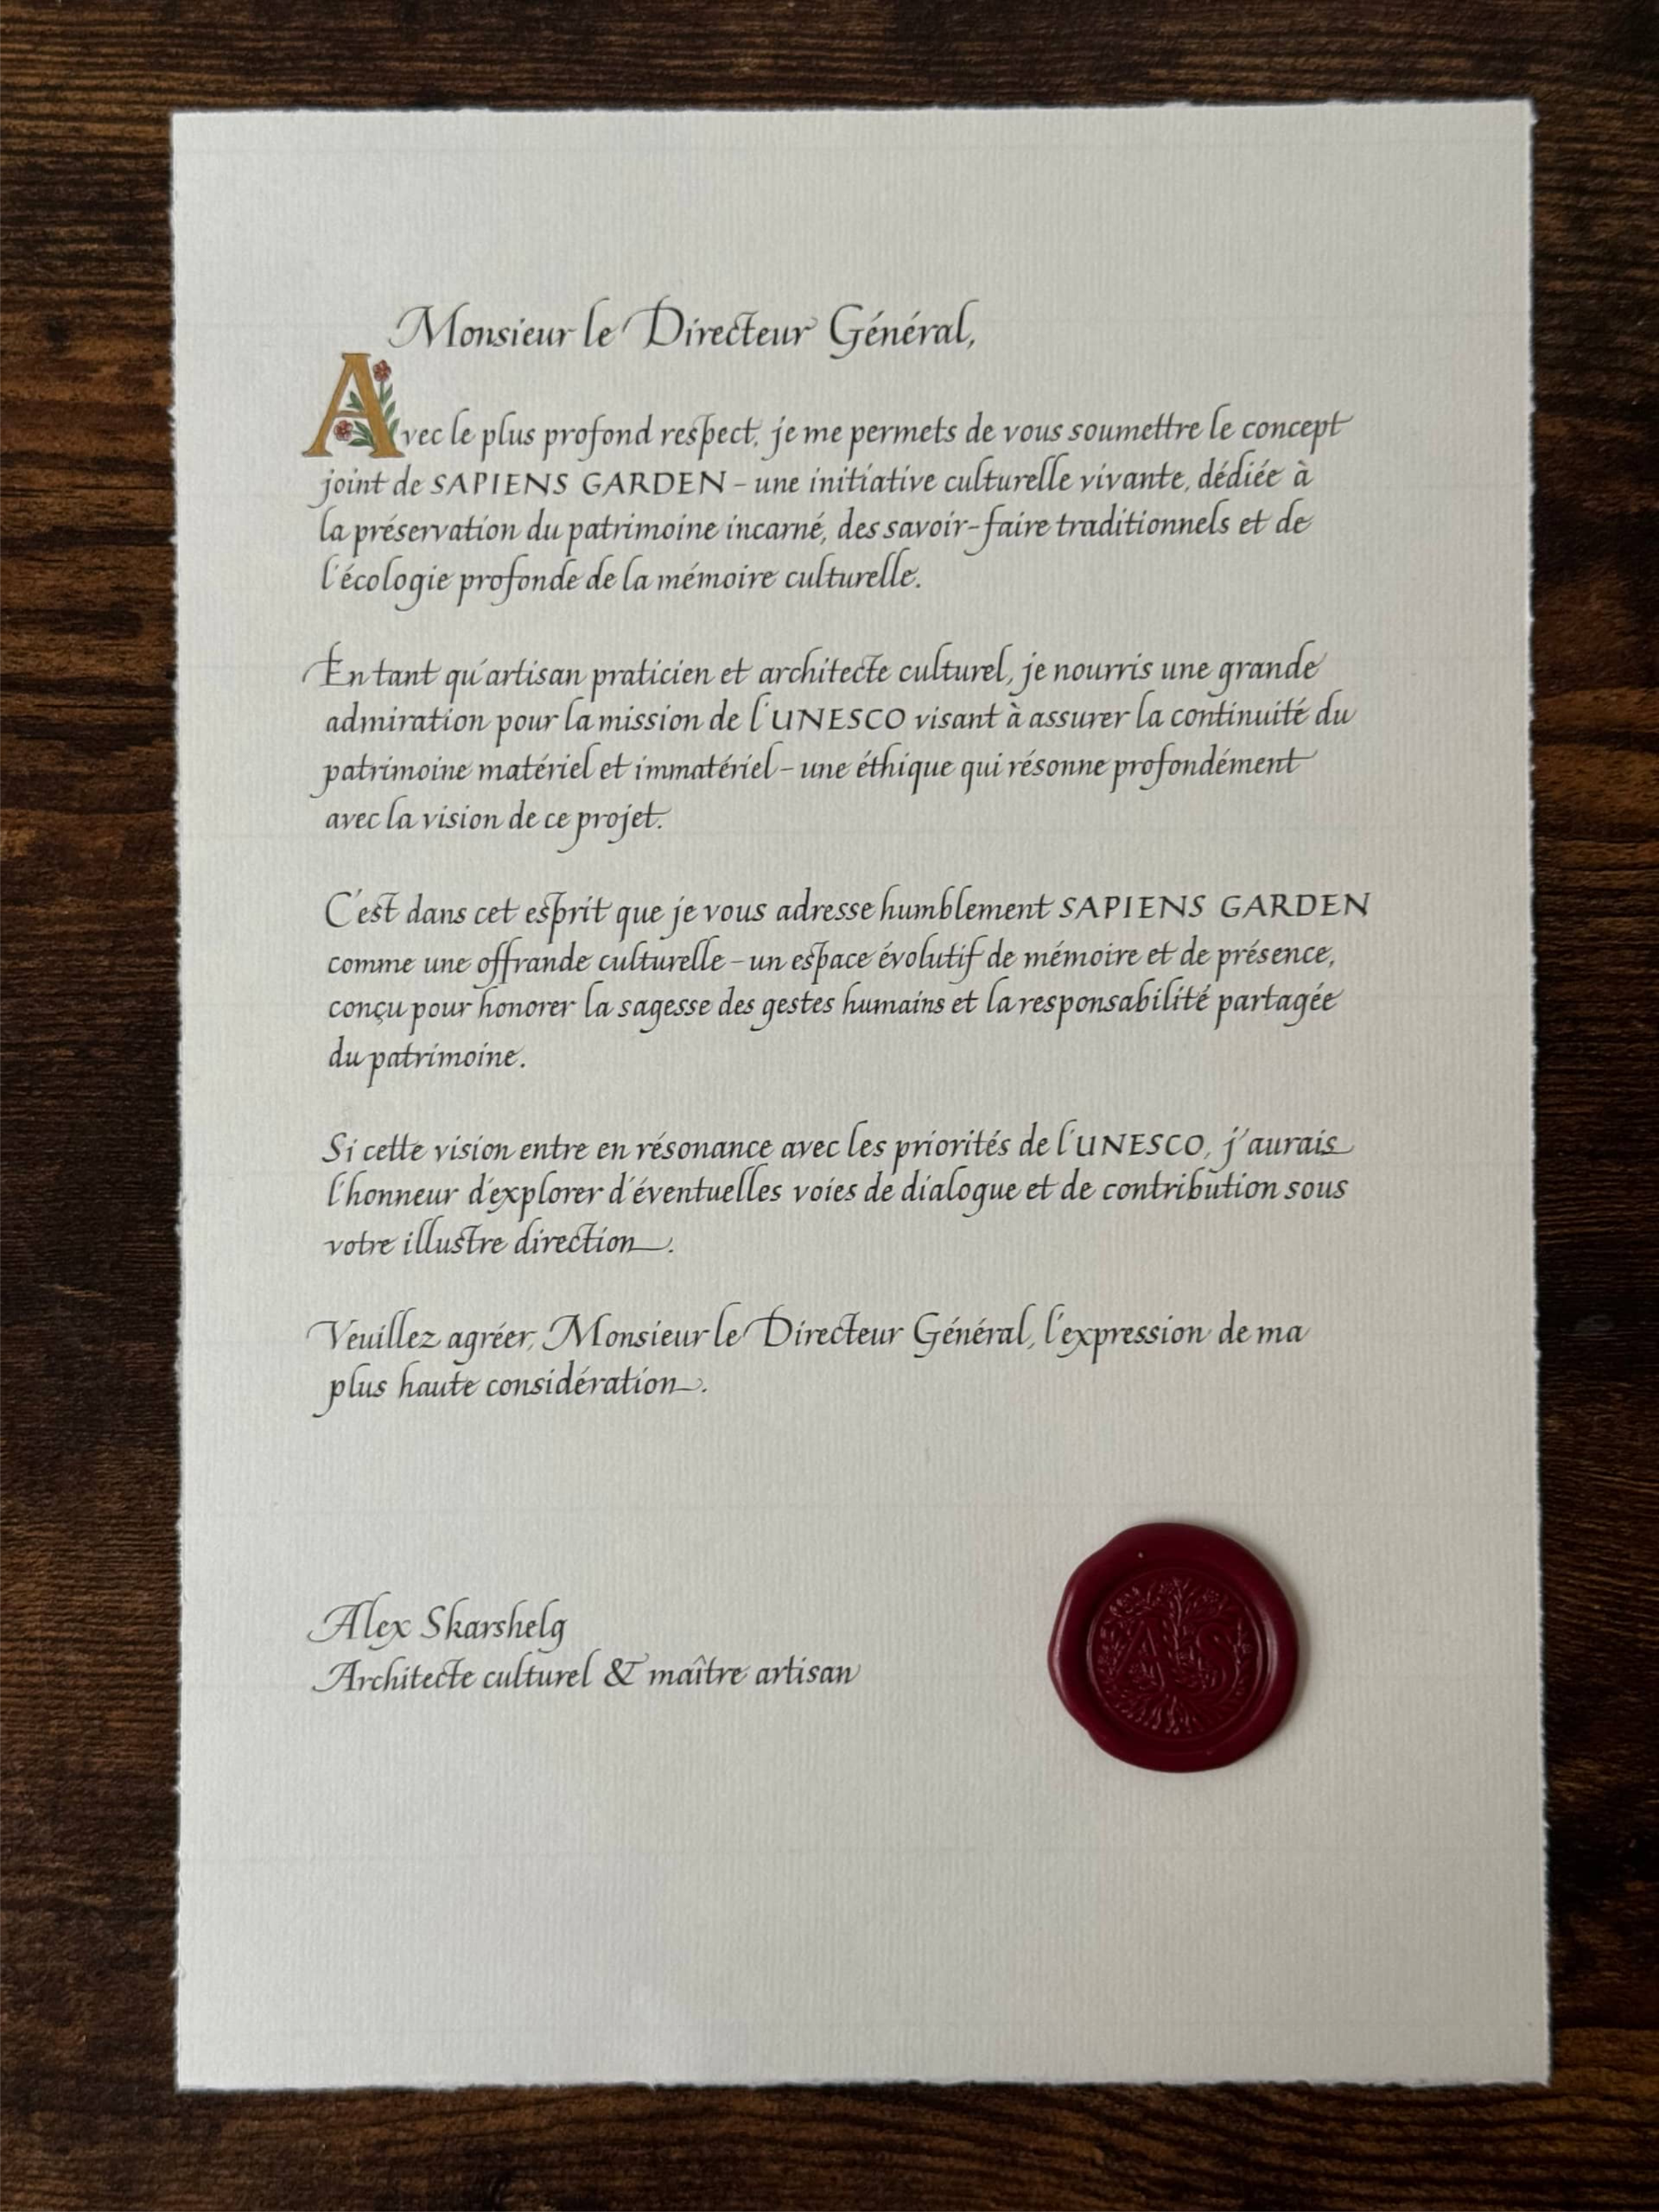 Monsieur le Directeur Général,
Avec le plus profond respect, je me permets de vous soumettre le concept
joint de SAPIENS GARDEN – une initiative culturelle vivante, dédiée à
la préservation du patrimoine incarné, des savoir-faire traditionnels et de
l'écologie profonde de la mémoire culturelle.
En tant qu'artisan praticien et architecte culturel, je nourris une grande
admiration pour la mission de l'UNESCO visant à assurer la continuité du
patrimoine matériel et immatériel – une éthique qui résonne profondément
avec la vision de ce projet.
C'est dans cet esprit que je vous adresse humblement SAPIENS GARDEN
comme une offrande culturelle – un espace évolutif de mémoire et de présence,
conçu pour honorer la sagesse des gestes humains et la responsabilité partagée
du patrimoine.
Si cette vision entre en résonance avec les priorités de l'UNESCO, j'aurais
l'honneur d'explorer d'éventuelles voies de dialogue et de contribution sous
votre illustre direction.
Veuillez agréer, Monsieur le Directeur Général, l'expression de ma
plus haute considération.
Alex Skarshelg
Architecte culturel & maître artisan
AS